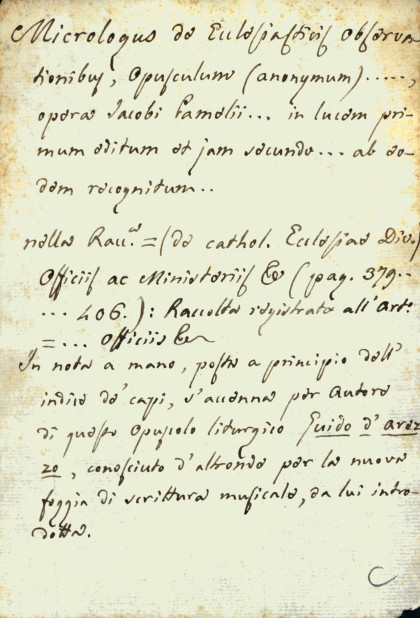 Micrologus de Ecclesiasticis Observa-
tionibus, Opusculum (anonymum) .....,
opera Jacobi Pamelii... in lucem pri-
mum editum et jam secundo... ab eo-
dem recognitum..
nella Racc.ta = (de cathol. Ecclesiae Div.)
Officiis ac Ministeriis &c (pag. 379..
... 406.): Raccolta registrata all'Art.
= ... Officiis &c
In nota a mano, posta a principio dell'
indice de' capi, s'accenna per Autore
di questo Opuscolo liturgico Guido d'Arez-
zo, conosciuto d'altronde per la nuova
foggia di scrittura musicale, da lui intro-
dotta.
C